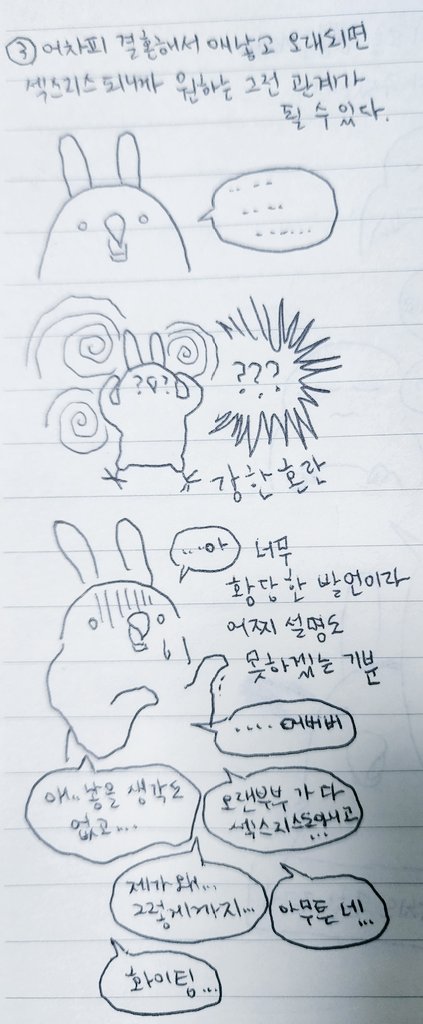 ③ 어차피 결혼해서 애낳고 오래되면
섹스리스 되니까 원하는 그런 관계가
될 수 있다.
.. -- --
.. -- ..
.. ......
???
강한 혼란
....아
너무
황당한 발언이라
어찌 설명도
못하겠는 기분
.... 어버버
애.. 낳을 생각도
없고...
오랜부부가 다
섹스리스도아니고
...
제가 왜...
그렇게까지...
아무튼 네...
화이팅...